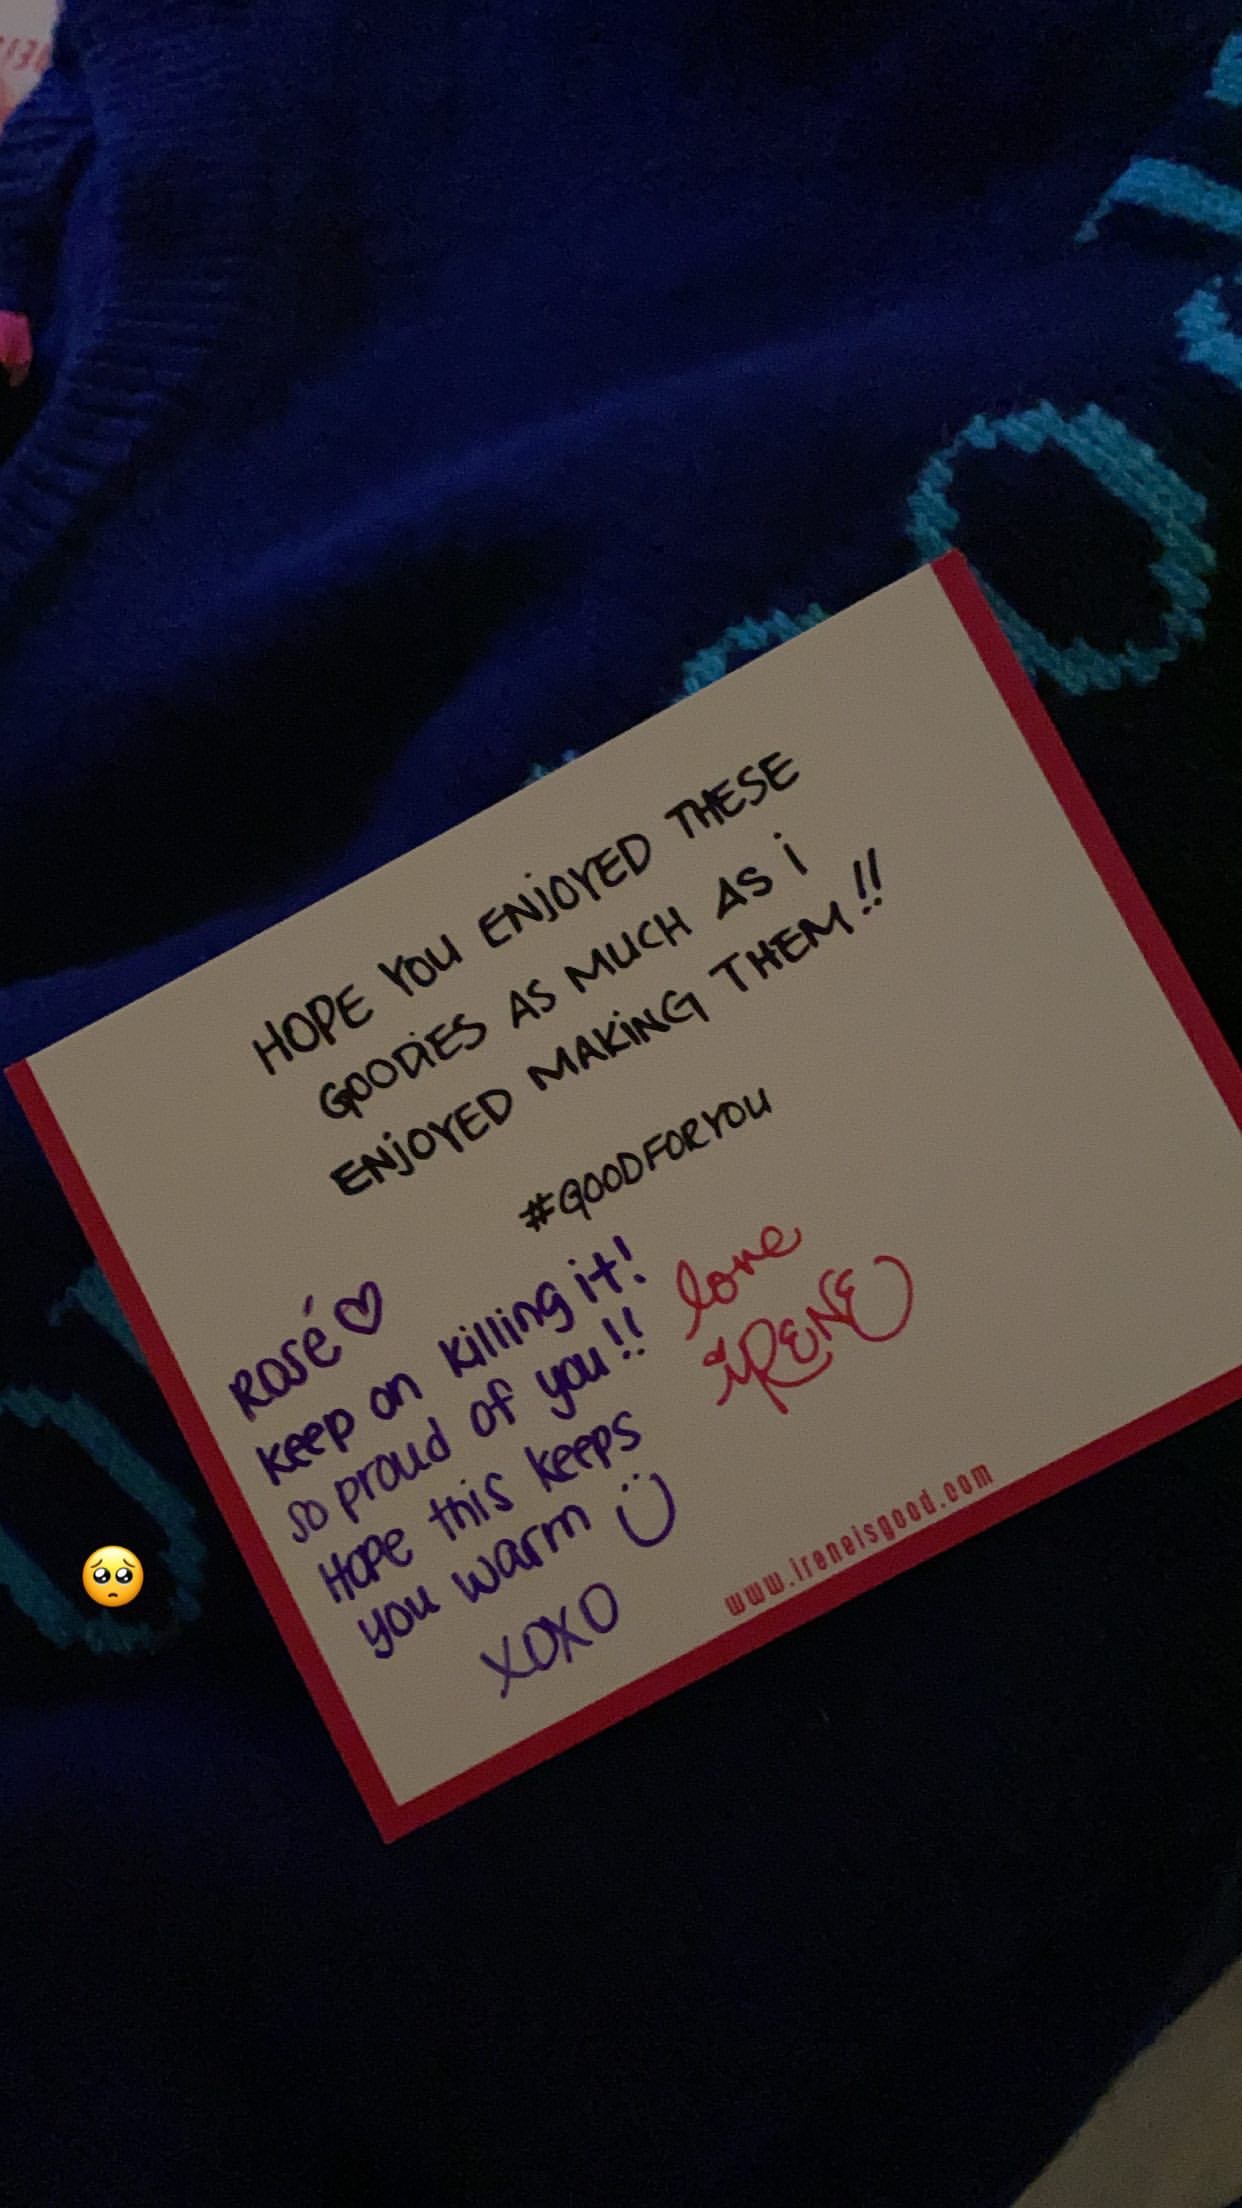 HOPE YOU ENJOYED THESE
GOODIES AS MUCH AS i
ENJOYED MAKING THEM!!
#GOODFORYOU
ROSÉ♡
keep on killing it!
so proud of you!!
Hope this keeps
you warm
XOXO
love
iRENE
www.ireneisgood.com